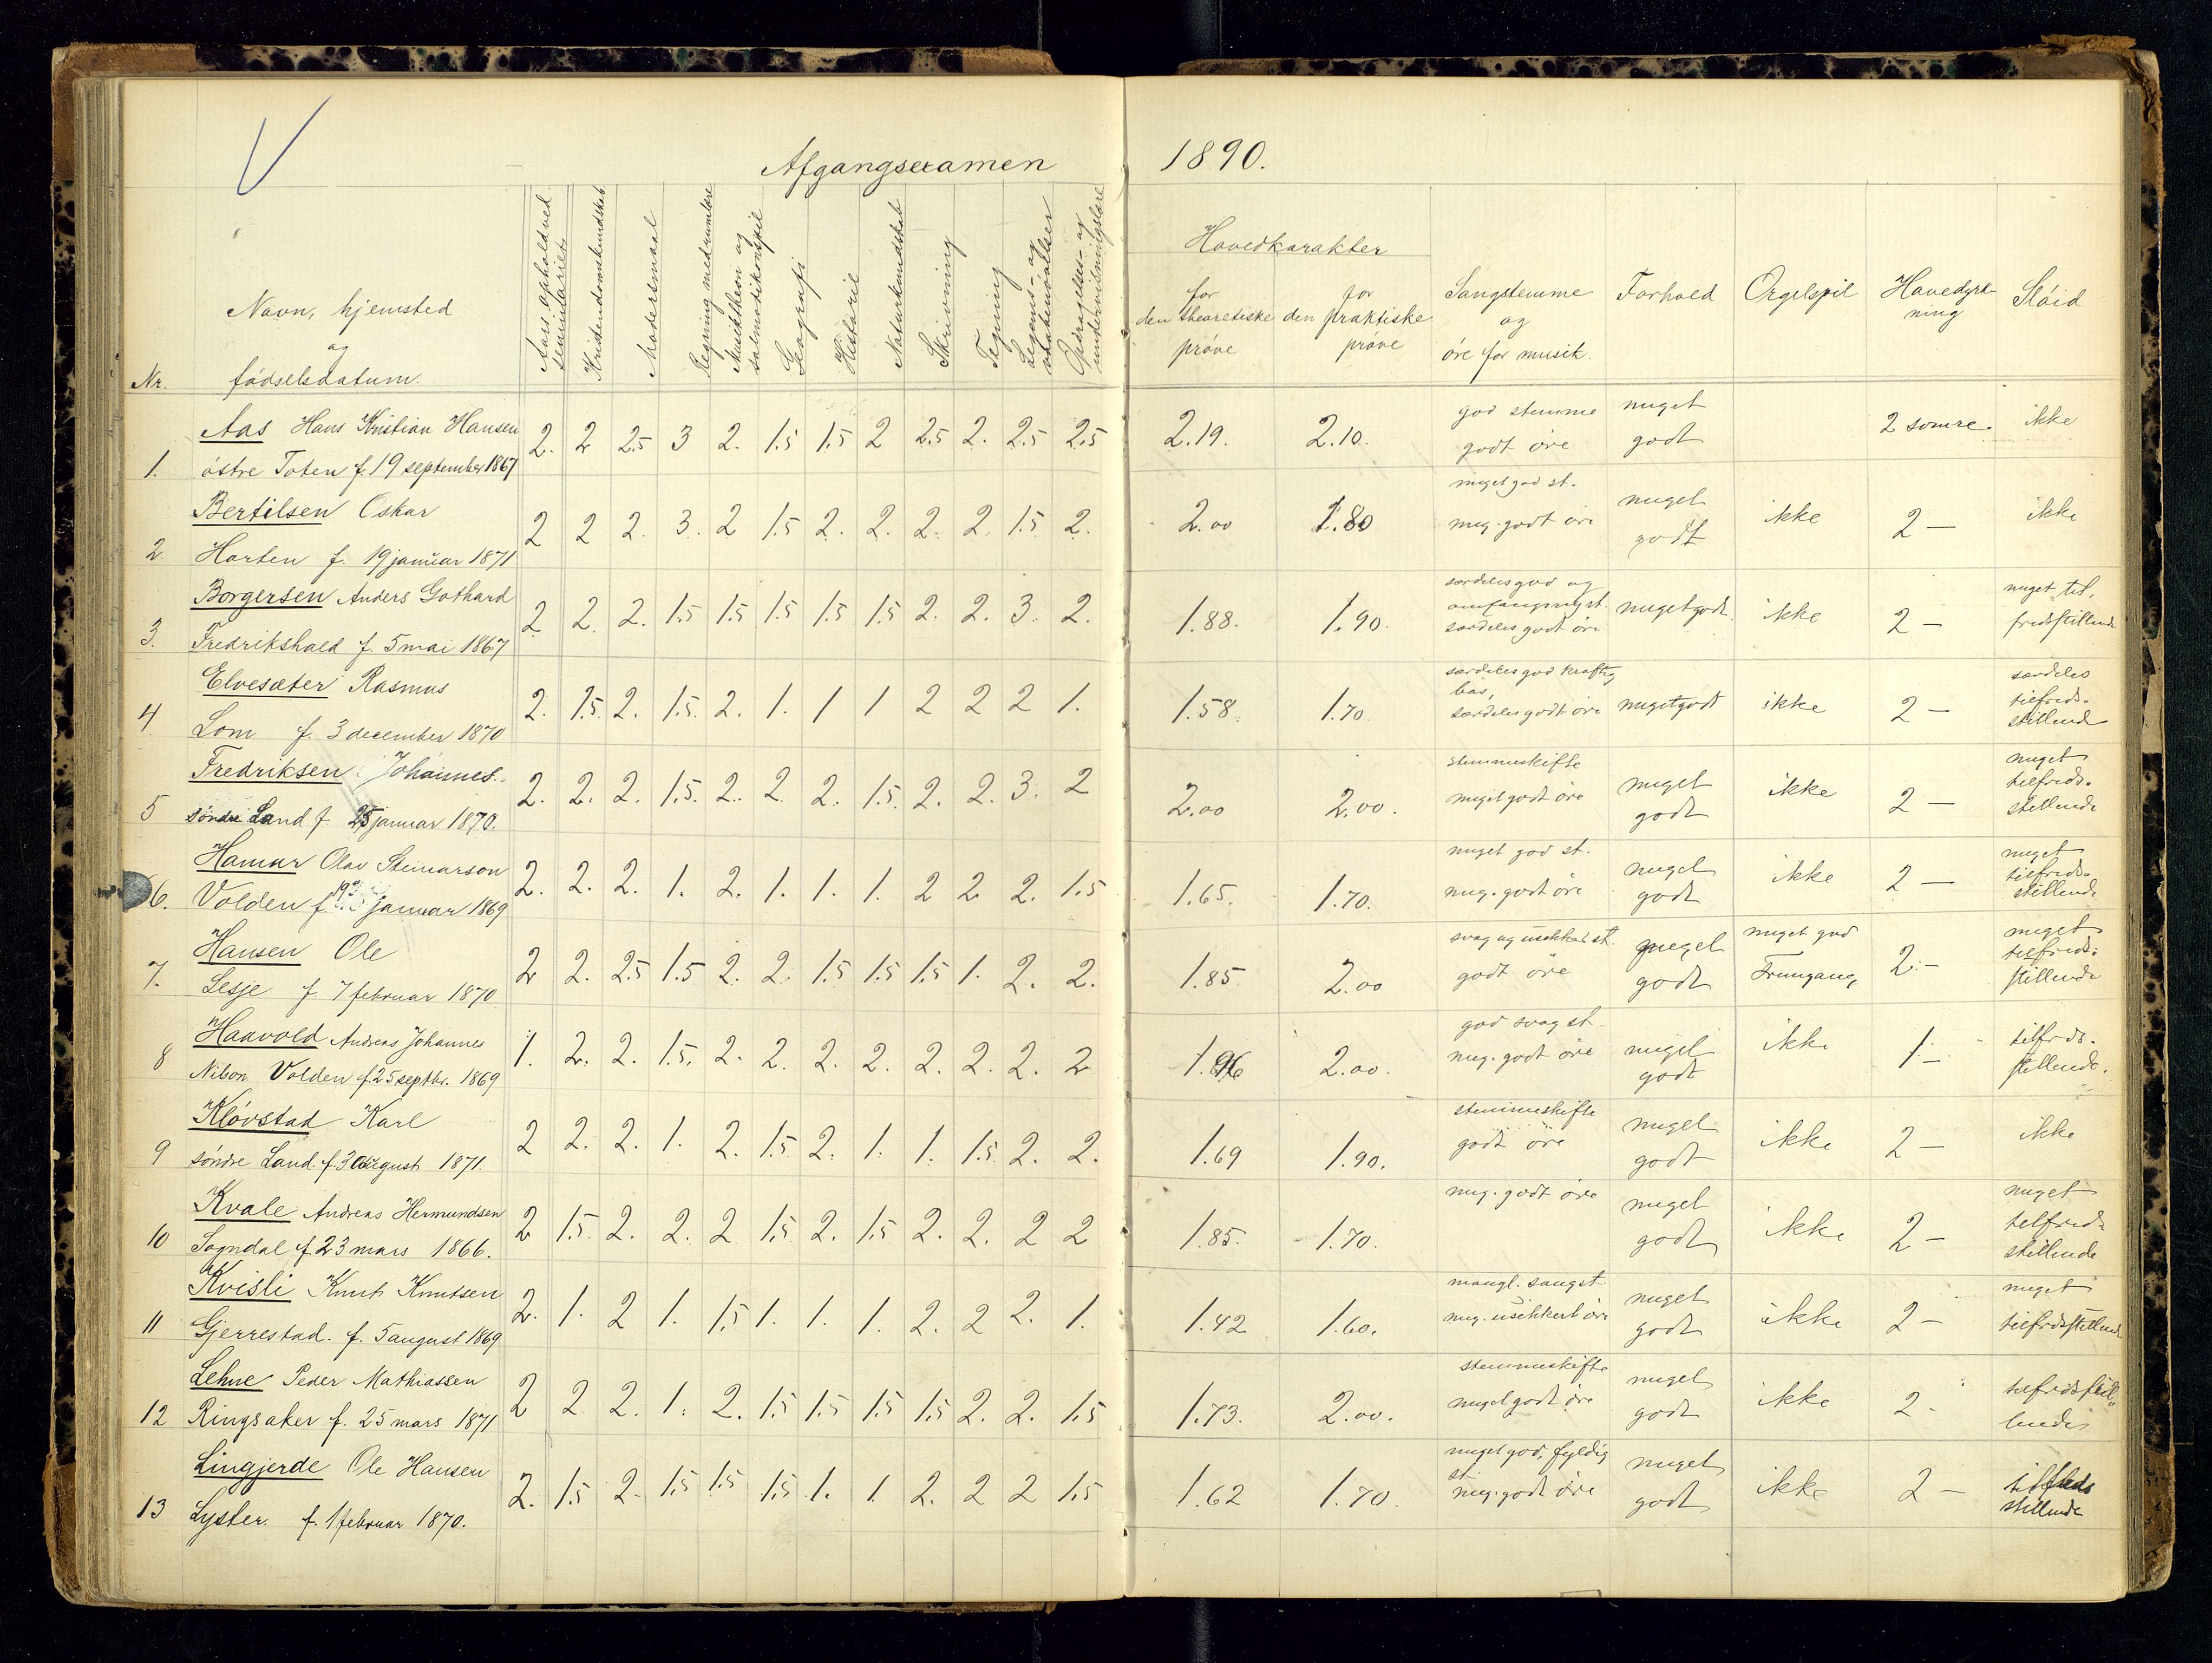 Afgangsexamen 1890.
Nr.
Navn, hjemsted
og
födselsdatum.
Aars ophold ved
seminariet
Kristendomskundskab
Modersmaal
Regning med rumlære
Musiktheori og
salmodikonspil
Geografi
Historie
Naturkundskab
Skrivning
Tegning
Legems- og
vaabenövelser
Opdragelses- og
undervisningslære
Hovedkarakter
for
den theoretiske
pröve
for
den praktiske
pröve
Sangstemme
og
öre for musik.
Forhold
Orgelspil
Havedyrk-
ning
Slöid
1. Aas Hans Kristian Hansen
östre Toten f. 19 september 1867
2. 2 2.5 3 2. 1.5 1.5 2 2.5 2. 2.5 2.5
2.19. 2.10.
god stemme
godt öre
meget
godt
2 somre. ikke
2. Bertilsen Oskar
Horten f. 19 januar 1871
2 2 2. 3. 2 1.5 2. 2. 2. 2. 1.5 2.
2.00 1.80
meget god st.
meg. godt öre
meget
godt
ikke 2 — ikke
3. Borgersen Anders Gothard
Fredrikshald f. 5 mai 1867
2 2. 2. 1.5 1.5 1.5 1.5 1.5 2. 2. 3. 2.
1.88. 1.90.
særdeles god og
omfangsrig st.
særdeles godt öre
meget godt
ikke 2 —
meget til,
fredsstillende
4 Elvesæter Rasmus
Lom f. 3 december 1870
2. 1.5. 2. 1.5. 2. 1. 1 1 2 2 2 1.
1.58. 1.70.
særdeles god kraftig
bas,
særdeles godt öre
meget godt
ikke 2 —
særdeles
tilfreds-
stillende
5 Fredriksen Johannes.
söndre Land f. 25 januar 1870.
2. 2. 2. 1.5. 2. 2. 2. 1.5. 2. 2. 3. 2
2.00 2.00.
stemmeskifte
meget godt öre
meget
godt
ikke 2 —
meget
tilfreds-
stillende
6. Hamar Olav Steinarson
Volden f. 19 januar 1869
2. 2. 2. 1. 2. 1. 1. 1. 2 2 2. 1.5
1.65. 1.70.
meget god st.
meg. godt öre
meget
godt
ikke 2 —
meget
tilfreds-
stillende
7. Hansen Ole
Lesje f. 7 februar 1870
2 2. 2.5 1.5 2. 2. 1.5 1.5 1.5 1. 2. 2.
1.85 2.00
svag og usikker st.
godt öre
meget
godt
meget god
Fremgang,
2. —
meget
tilfreds-
stillende
8 Haavold Andreas Johannes
Nilson Volden f. 25 septbr. 1869
1. 2. 2. 1.5. 2. 2. 2. 2. 2. 2. 2. 2
1.96 2.00.
god svag st.
meg. godt öre
meget
godt
ikke 1. —
tilfreds-
stillende.
9 Klövstad Karl
söndre Land. f. 30 august 1871.
2 2. 2. 1. 2. 1.5 2. 1. 1. 1.5. 2. 2.
1.69 1.90.
stemmeskifte
godt öre
meget
godt
ikke 2 — ikke
10 Kvale Andreas Hermundsen
Sogndal f. 23 mars 1866.
2 1.5. 2. 2. 2 1.5 2. 1.5 2. 2. 2 2
1.85. 1.70.
meg. godt öre
meget
godt
ikke 2 —
meget
tilfreds-
stillende
11 Kvisli Knut Knutsen
Gjerrestad. f. 5 august 1869
2. 1. 2 1. 1.5 1. 1. 1. 2. 2 2. 1.
1.42 1.60.
mangl. sangst.
meg. usikkert öre
meget
godt
ikke 2 —
meget
tilfredsstillende
12 Lehne Peder Mathiassen
Ringsaker f. 25 mars 1871
2 2 2. 1. 2. 1.5 1.5 1.5 1.5 2. 2. 1.5
1.73. 2.00.
stemmeskifte
meget godt öre
meget
godt
ikke 2 -
tilfredsstil-
lende
13 Lingjerde Ole Hansen
Lyster. f. 1 februar 1870.
2. 1.5 2. 1.5 1.5 1.5 1. 1. 2. 2 2 1.5
1.62 1.70.
meget god, fyldig
st.
meg. godt öre
meget
godt
ikke 2 —
tilfreds
stillende